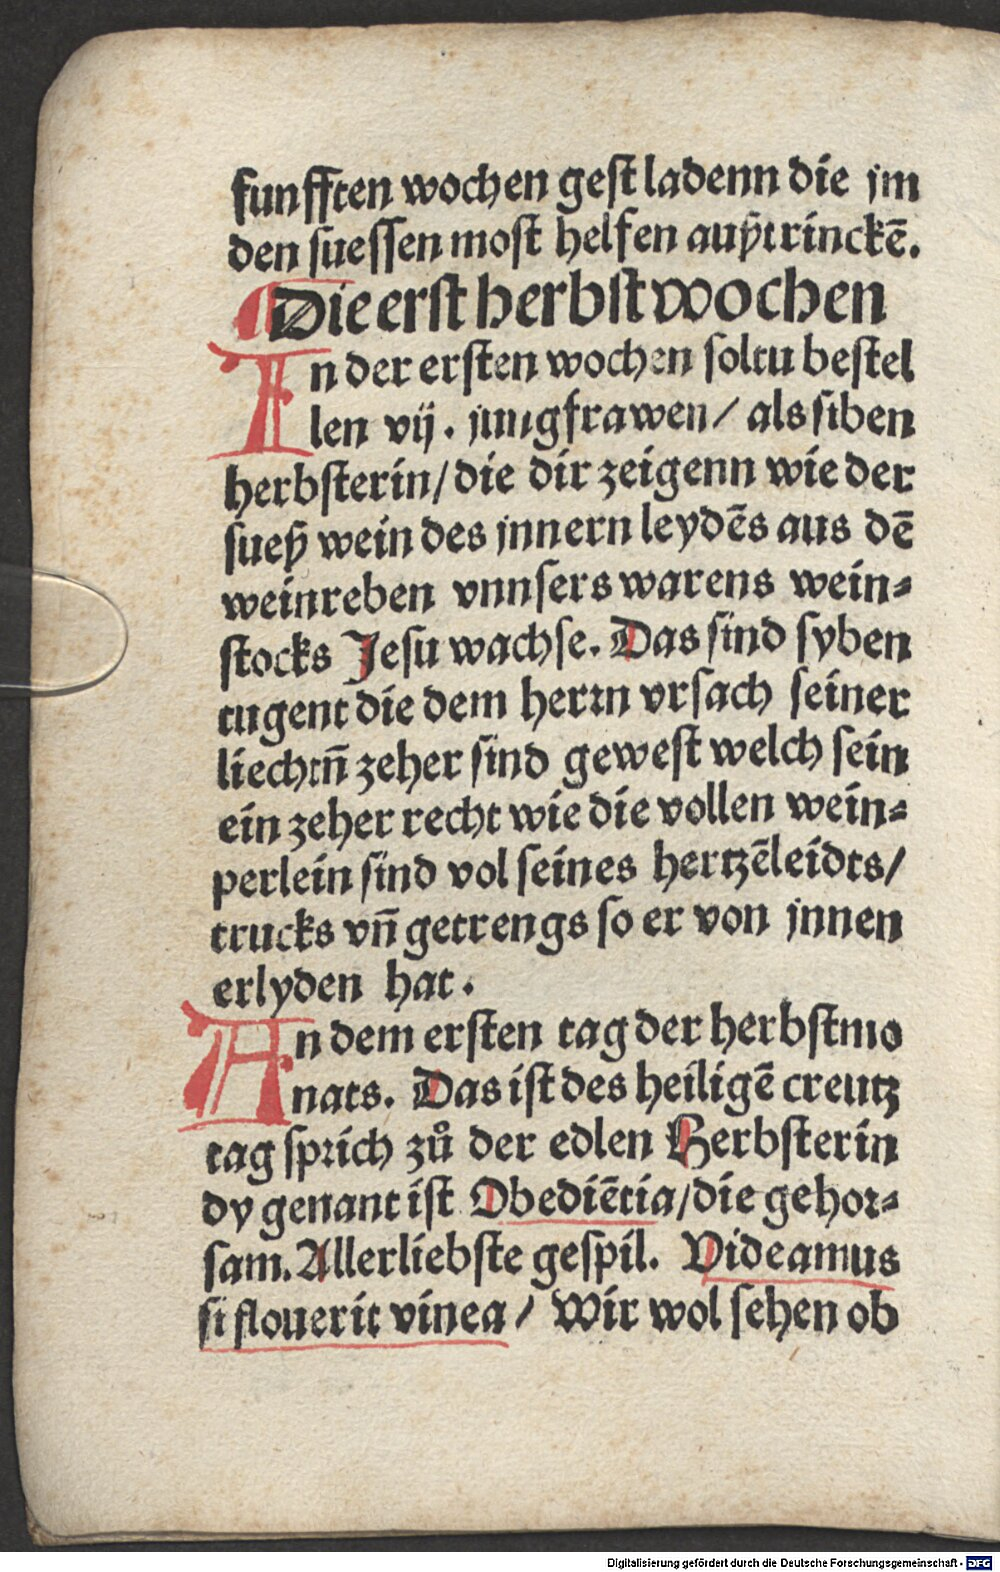 funfften wochen gest ladenn die jm
den suessen most helfen außtrinckē.
Die erst herbstwochen
In der ersten wochen soltu bestel
len vij. jungfrawen/ als siben
herbsterin/ die dir zeigenn wie der
sueß wein des jnnern leydēs aus dē
weinreben vnnsers warens wein⸗
stocks Jesu wachse. Das sind syben
tugent die dem herrn vrsach seiner
liechtn̄ zeher sind gewest welch sein
ein zeher recht wie die vollen wein⸗
perlein sind vol seines hertzēleidts/
trucks vn̄ getrengs so er von jnnen
erlyden hat.
An dem ersten tag der herbstmo
nats. Das ist des heiligē creutz
tag sprich zů der edlen Herbsterin
dy genant ist Obediētia/ die gehor⸗
sam. Allerliebste gespil. Videamus
si flouerit vinea/ Wir wol sehen ob
Digitalisierung gefördert durch die Deutsche Forschungsgemeinschaft - DFG